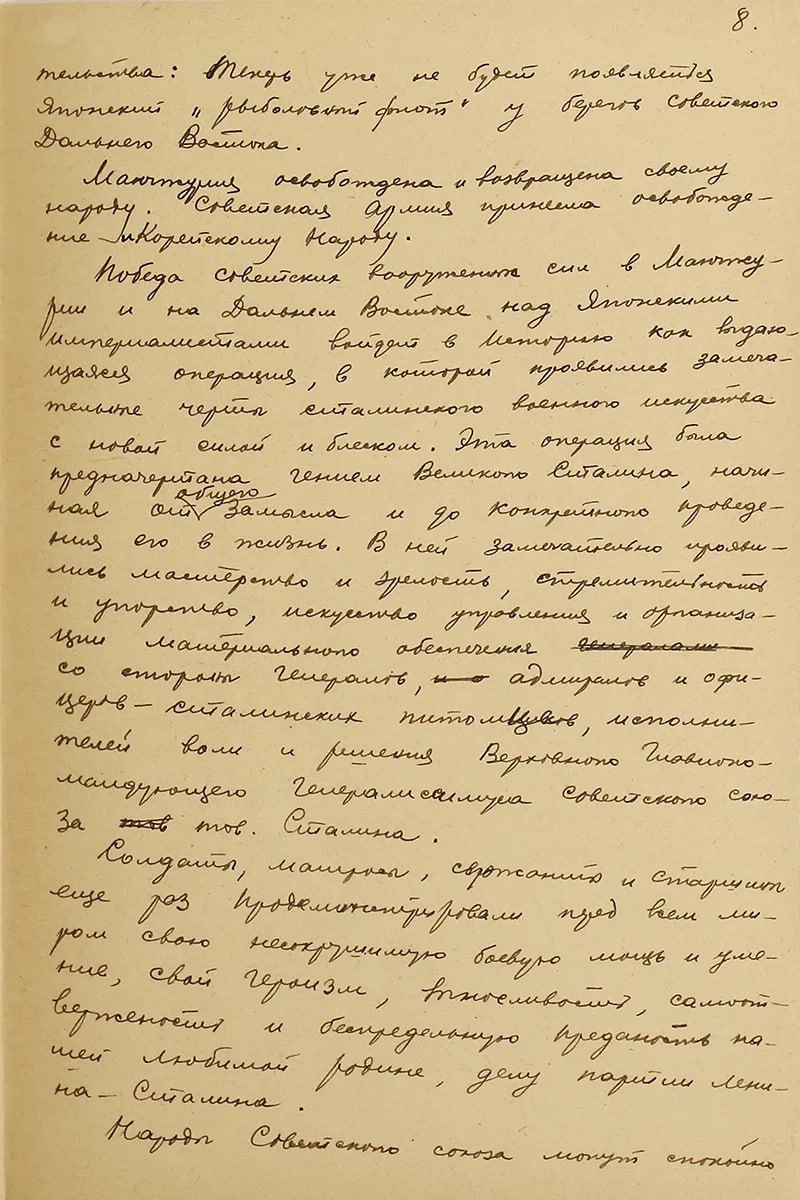 8.
тельства: Теперь уже не будет появляться
Японский „рыболовный флот" у берегов Советского
Дальнего Востока.
Манчжурия освобождена и возвращена своему
народу. Советская Армия принесла освобожде-
ние и Корейскому Народу.
Победа советских вооруженых сил в Манчжу-
рии и на Дальнем Востоке над Японскими
империалистами войдет в Историю как выдаю-
щаяся операция, в которой проявились замеча-
тельные черты сталинского военного искусства
с новой силой и блеском. Эта операция была
предначертана гением Великого Сталина, начи-
ная от общего замысла и до конкретного проведе-
ния его в жизнь. В ней замечательно прояви-
лись мастерство и зрелость, стремительность
и упорство, искусство управления и организа-
ции материального обеспечения генералами
со стороны генералов, и о адмиралов и офи-
церов – сталинских питомцев, исполни-
телей воли и решения Верховного Главноко-
мандующего Генералисимуса Советского сою-
за тов тов. Сталина.
Солдаты, матросы, сержанты и старшины
еще раз продемонстрировали перед всем ми-
ром свою несокрушимую боевую мощь и уме-
ние, свой героизм, выносливость, самоот-
верженость и беспредельную преданость на-
шей любимой родине, делу партии Лени-
на – Сталина.
Народы Советского союза могут спокойно